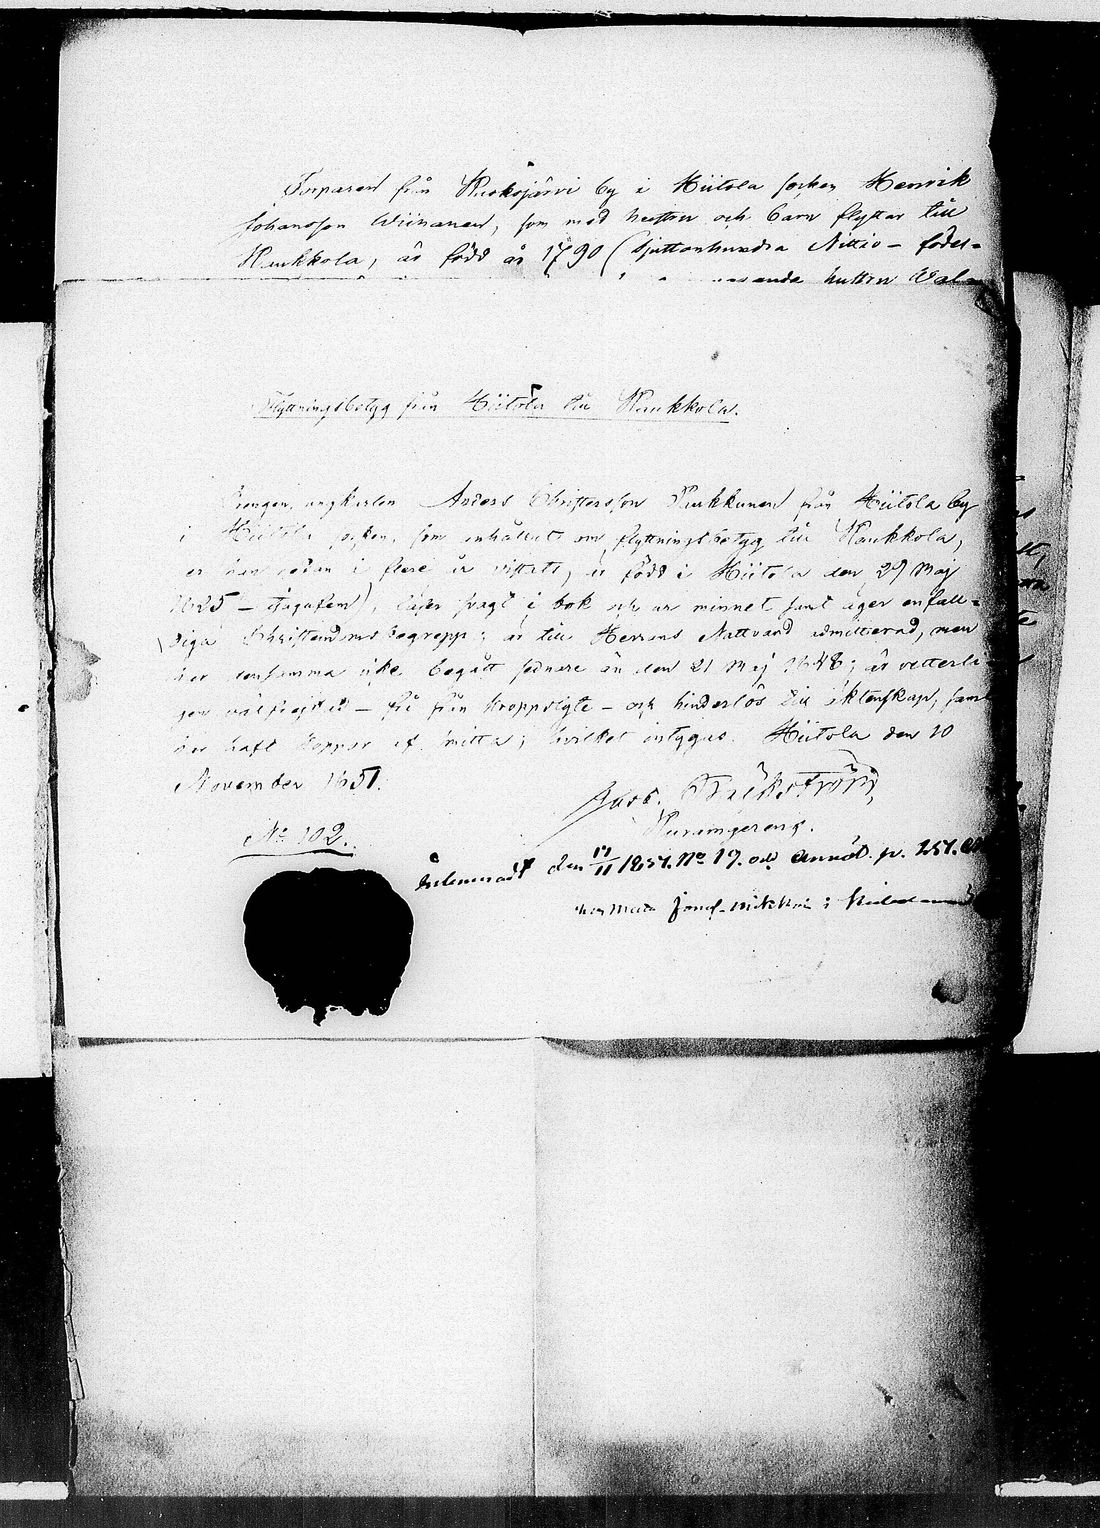 Torparen från Kuoksjärvi by i Hiitola socken Henrik
Johansson Wiinanen, som med hustru och barn flyttar till
Kaukkola, är född år 1790 (Sjuttonhundra Nittio – födel=
hustrun Wal
Flyttningsbetyg från Hiitola till Kaukkola.
Drengen, ungkarlen Anders Christersson Purkkunen från Hiitola by
i Hiitola socken, som anhållit om flyttningsbetyg till Kaukkola,
der han redan i flere år vistats, är född i Hiitola den 29 Maj
1825 – tjugufem), läser svagt i bok och ur minnet samt äger enfall=
diga Christendoms begrepp; är till Herrans Nattvard admitterad, men
har densamma icke begått sednare än den 21 Maj 1848; är vetterli=
gen välfrejdad – fri från kroppslyte – och hinderlös till äktenskap, samt
har haft koppor; hvilket intygas. Hiitola den 10
November 1851.
Jacob
No 102.
Inlemnadt den 17/11 1851. No 19. och annot. p. 251.
hos Matts i